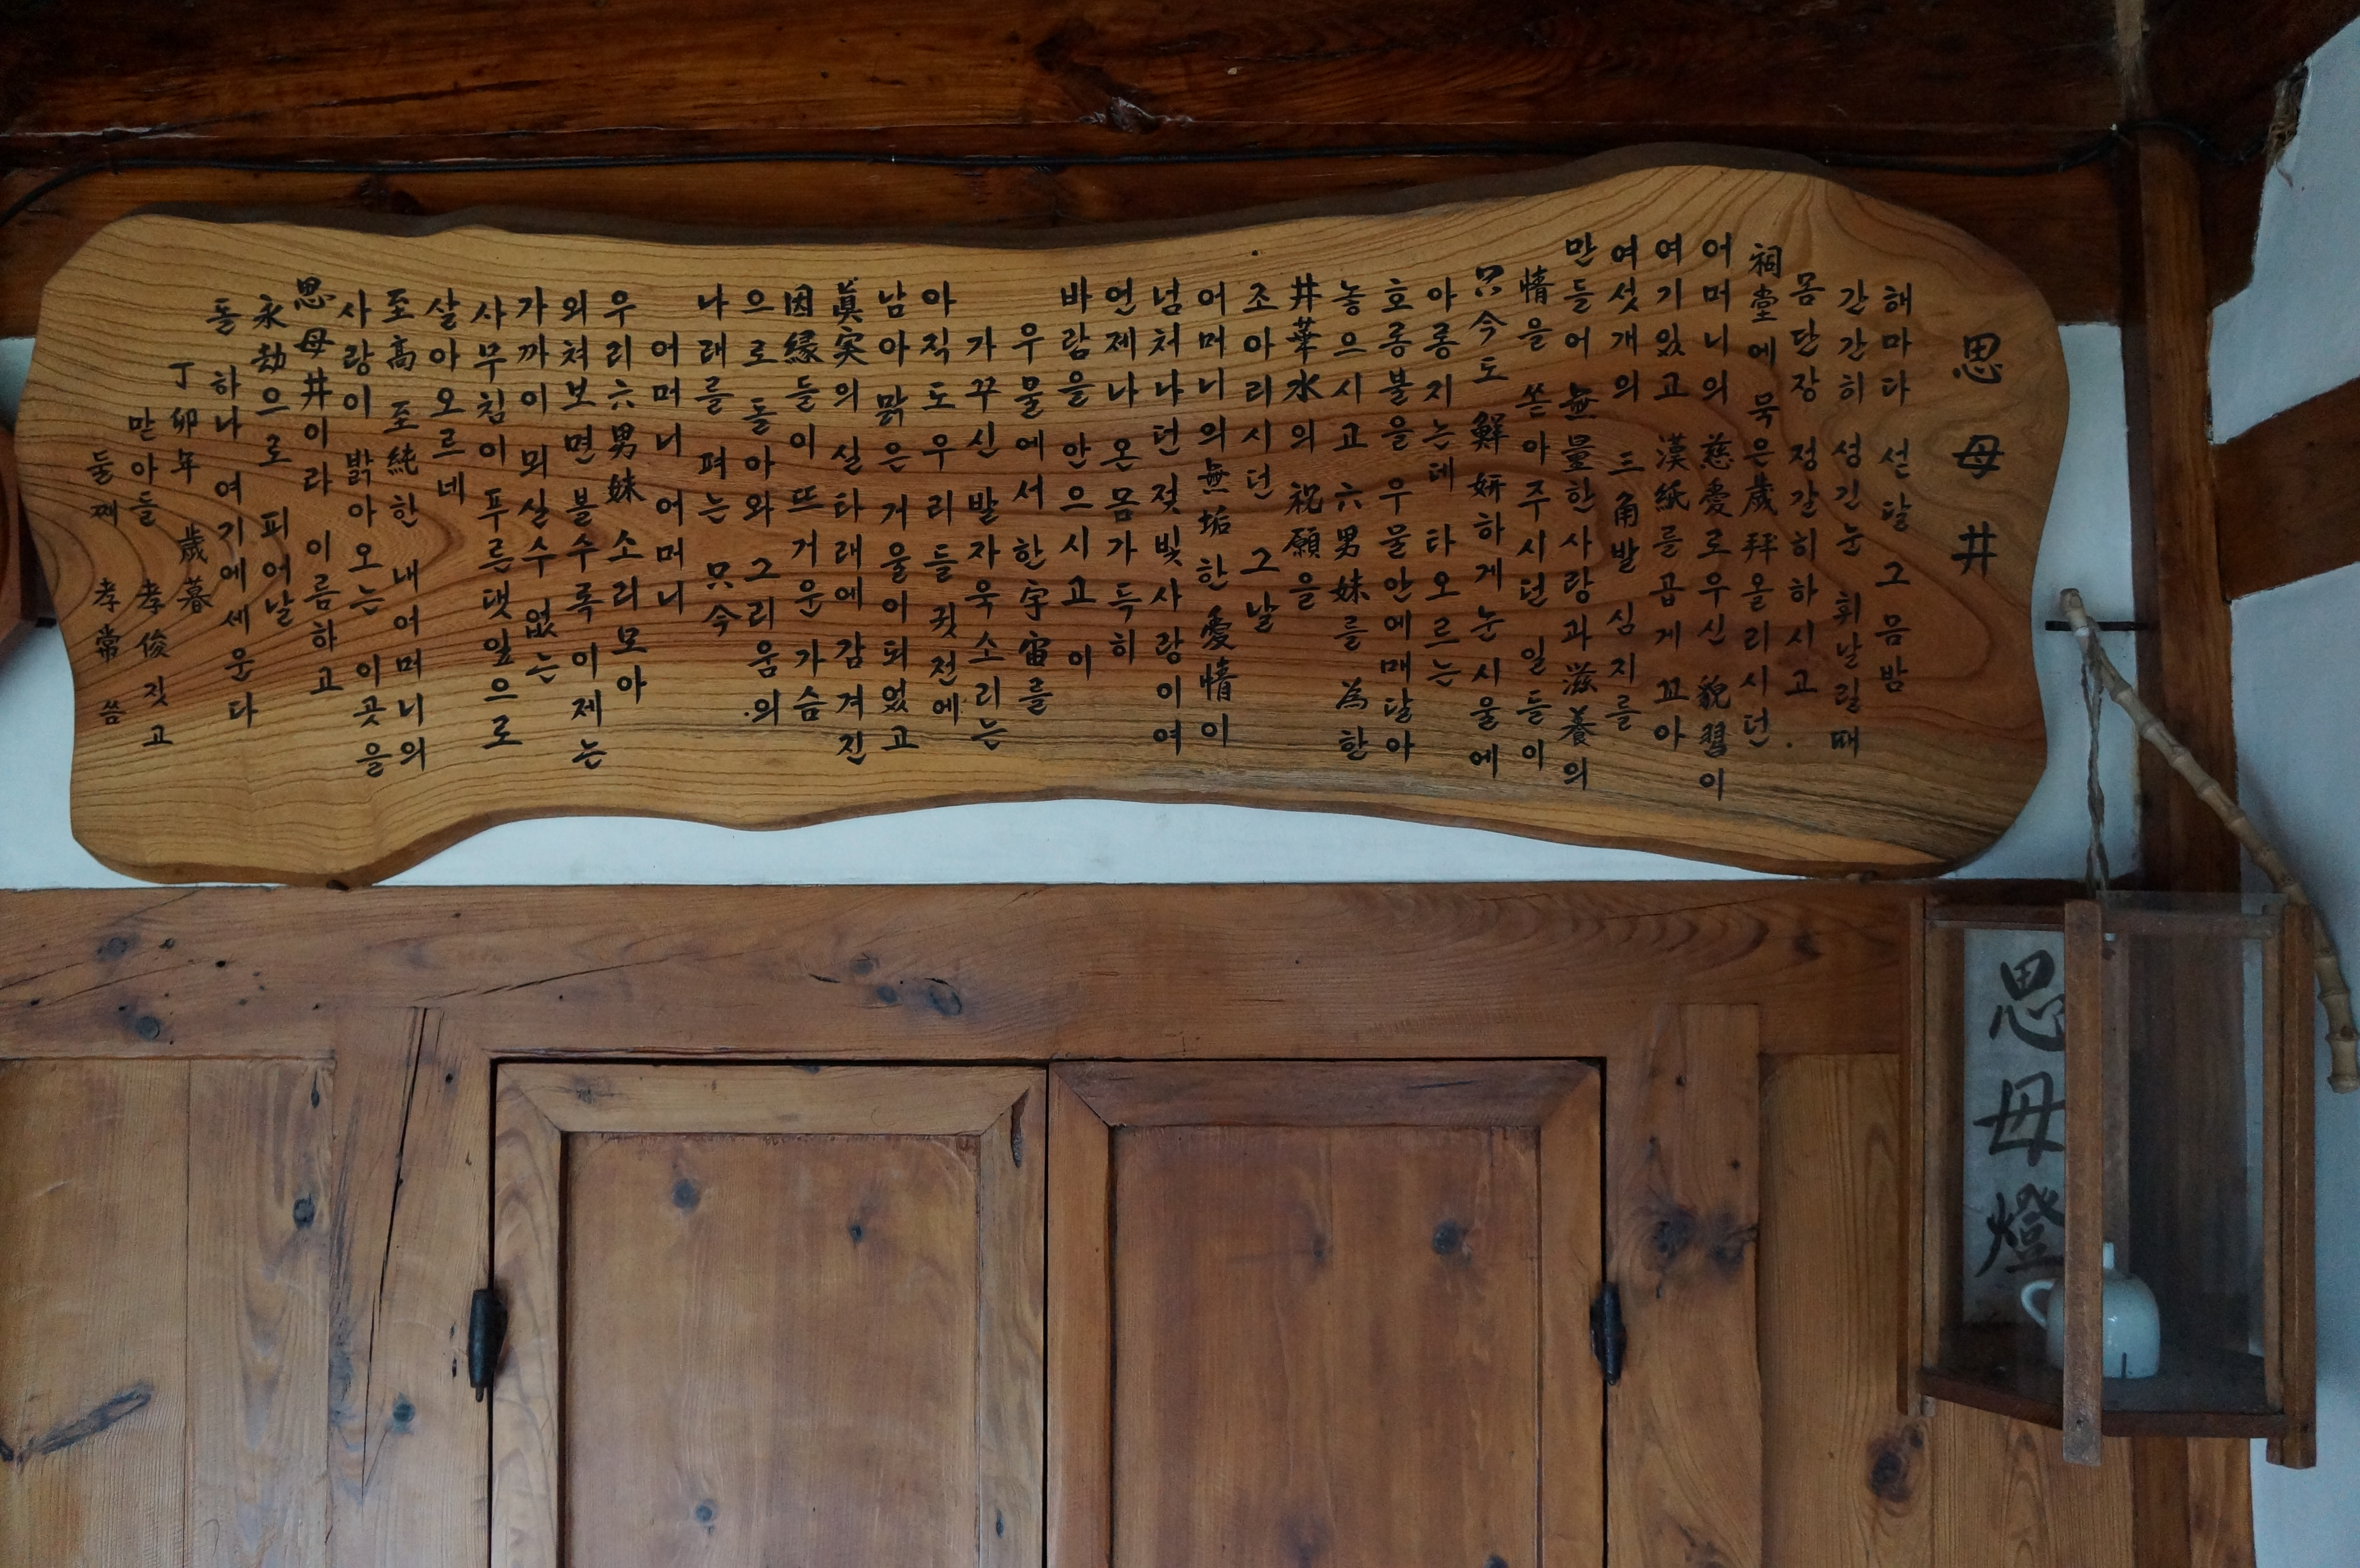 思母井
해마다 섣달 그믐밤
간간히 성긴눈 휘날릴때
몸단장 정갈히하시고
祠堂에 묵은歲拜올리시던
어머니의 慈愛로우신 貌習이
여기있고 漢紙를곱게 꼬아
여섯개의 三角발 심지를
만들어 無量한사랑과滋養의
情을 쏟아주시던 일들이
只今도 鮮姸하게눈시울에
아롱지는데 타오르는
호롱불을 우물안에매달아
놓으시고 六男妹를 為한
井華水의 祝願을
조아리시던 그날
어머니의無垢한愛情이
넘처나던젖빛사랑이여
언제나 온몸가득히
바람을 안으시고 이
우물에서 한宇宙를
가꾸신발자욱소리는
아직도우리들 귓전에
남아맑은거울이되었고
眞実의실타래에감겨진
因緣들이 뜨거운가슴
으로 돌아와 그리움의
나래를 펴는 只今
어머니 어머니
우리六男妹 소리모아
외쳐보면볼수록이제는
가까이 뫼실수 없는
사무침이푸른댓잎으로
살아오르네
至高 至純한 내어머니의
사랑이 밝아오는 이곳을
思母井이라 이름하고
永劫으로 피어날
돌 하나 여기에세운다
丁卯年 歲暮
맏아들 孝俊 짓고
둘째 孝常 씀
思母燈